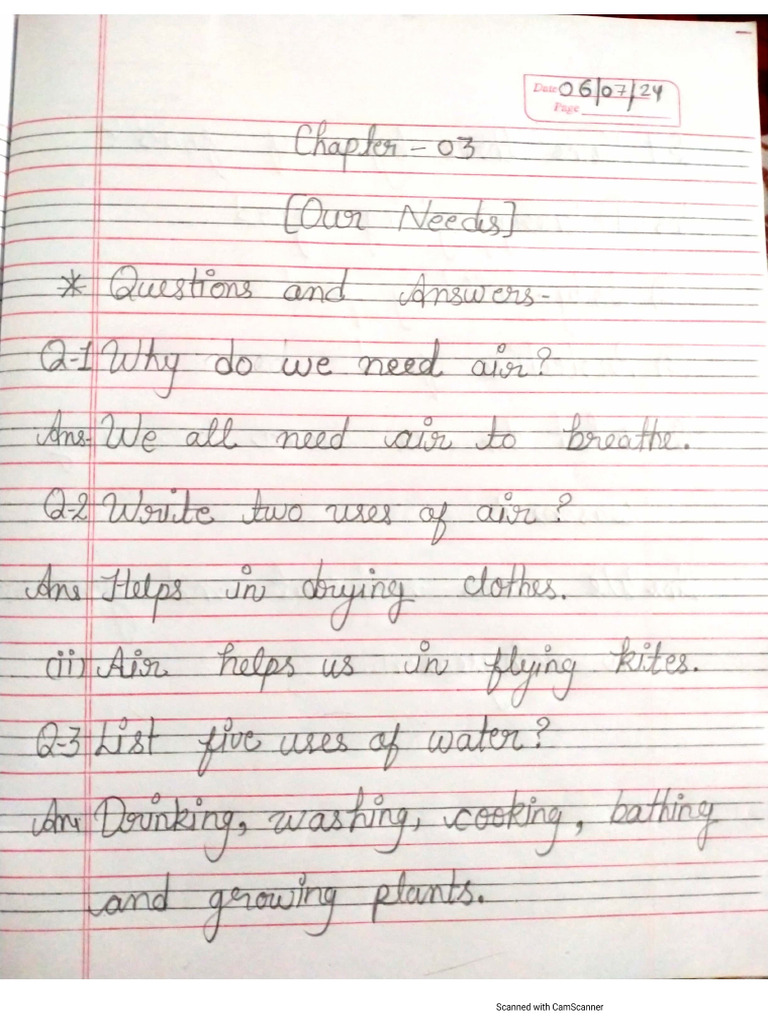 Date 06/07/24
Page
Chapter - 03
[Our Needs]
* Questions and Answers-
Q-1 Why do we need air?
Ans- We all need air to breathe.
Q-2 Write two uses of air?
Ans Helps in drying clothes.
(ii) Air helps us in flying kites.
Q-3 List five uses of water?
Ans Drinking, washing, cooking, bathing
and growing plants.
Scanned with CamScanner